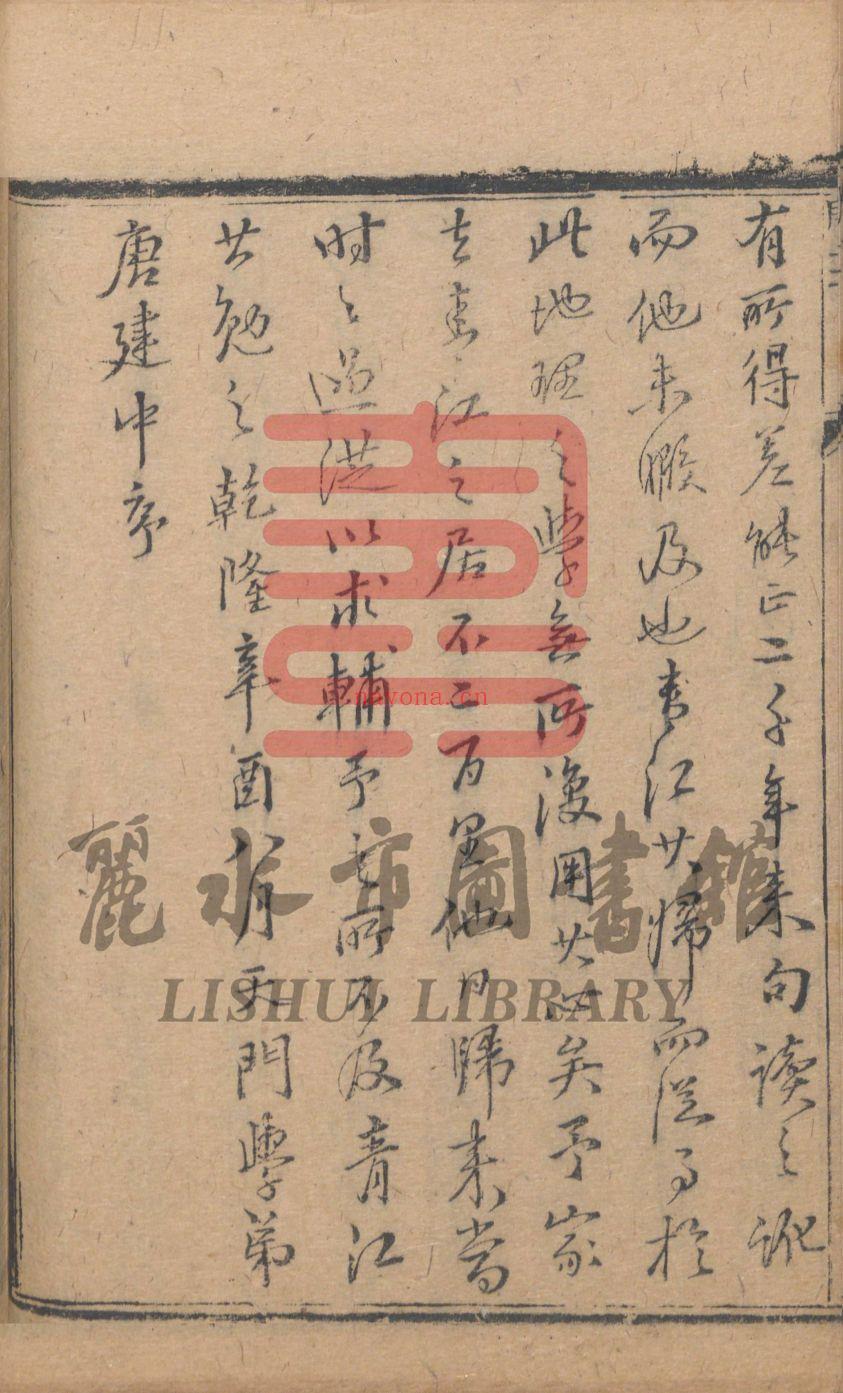 有所得差能正二千年来句讀之訛
而他未暇及也青江其歸而從事於
此地理之學無所復用其心矣予家
去青江之居不二百里他日歸来當
时之過從以求輔予之所不及青江
其勉之乾隆辛酉八月天門學弟
唐建中序
nayona.cn
麗水市圖書館
LISHUI LIBRARY